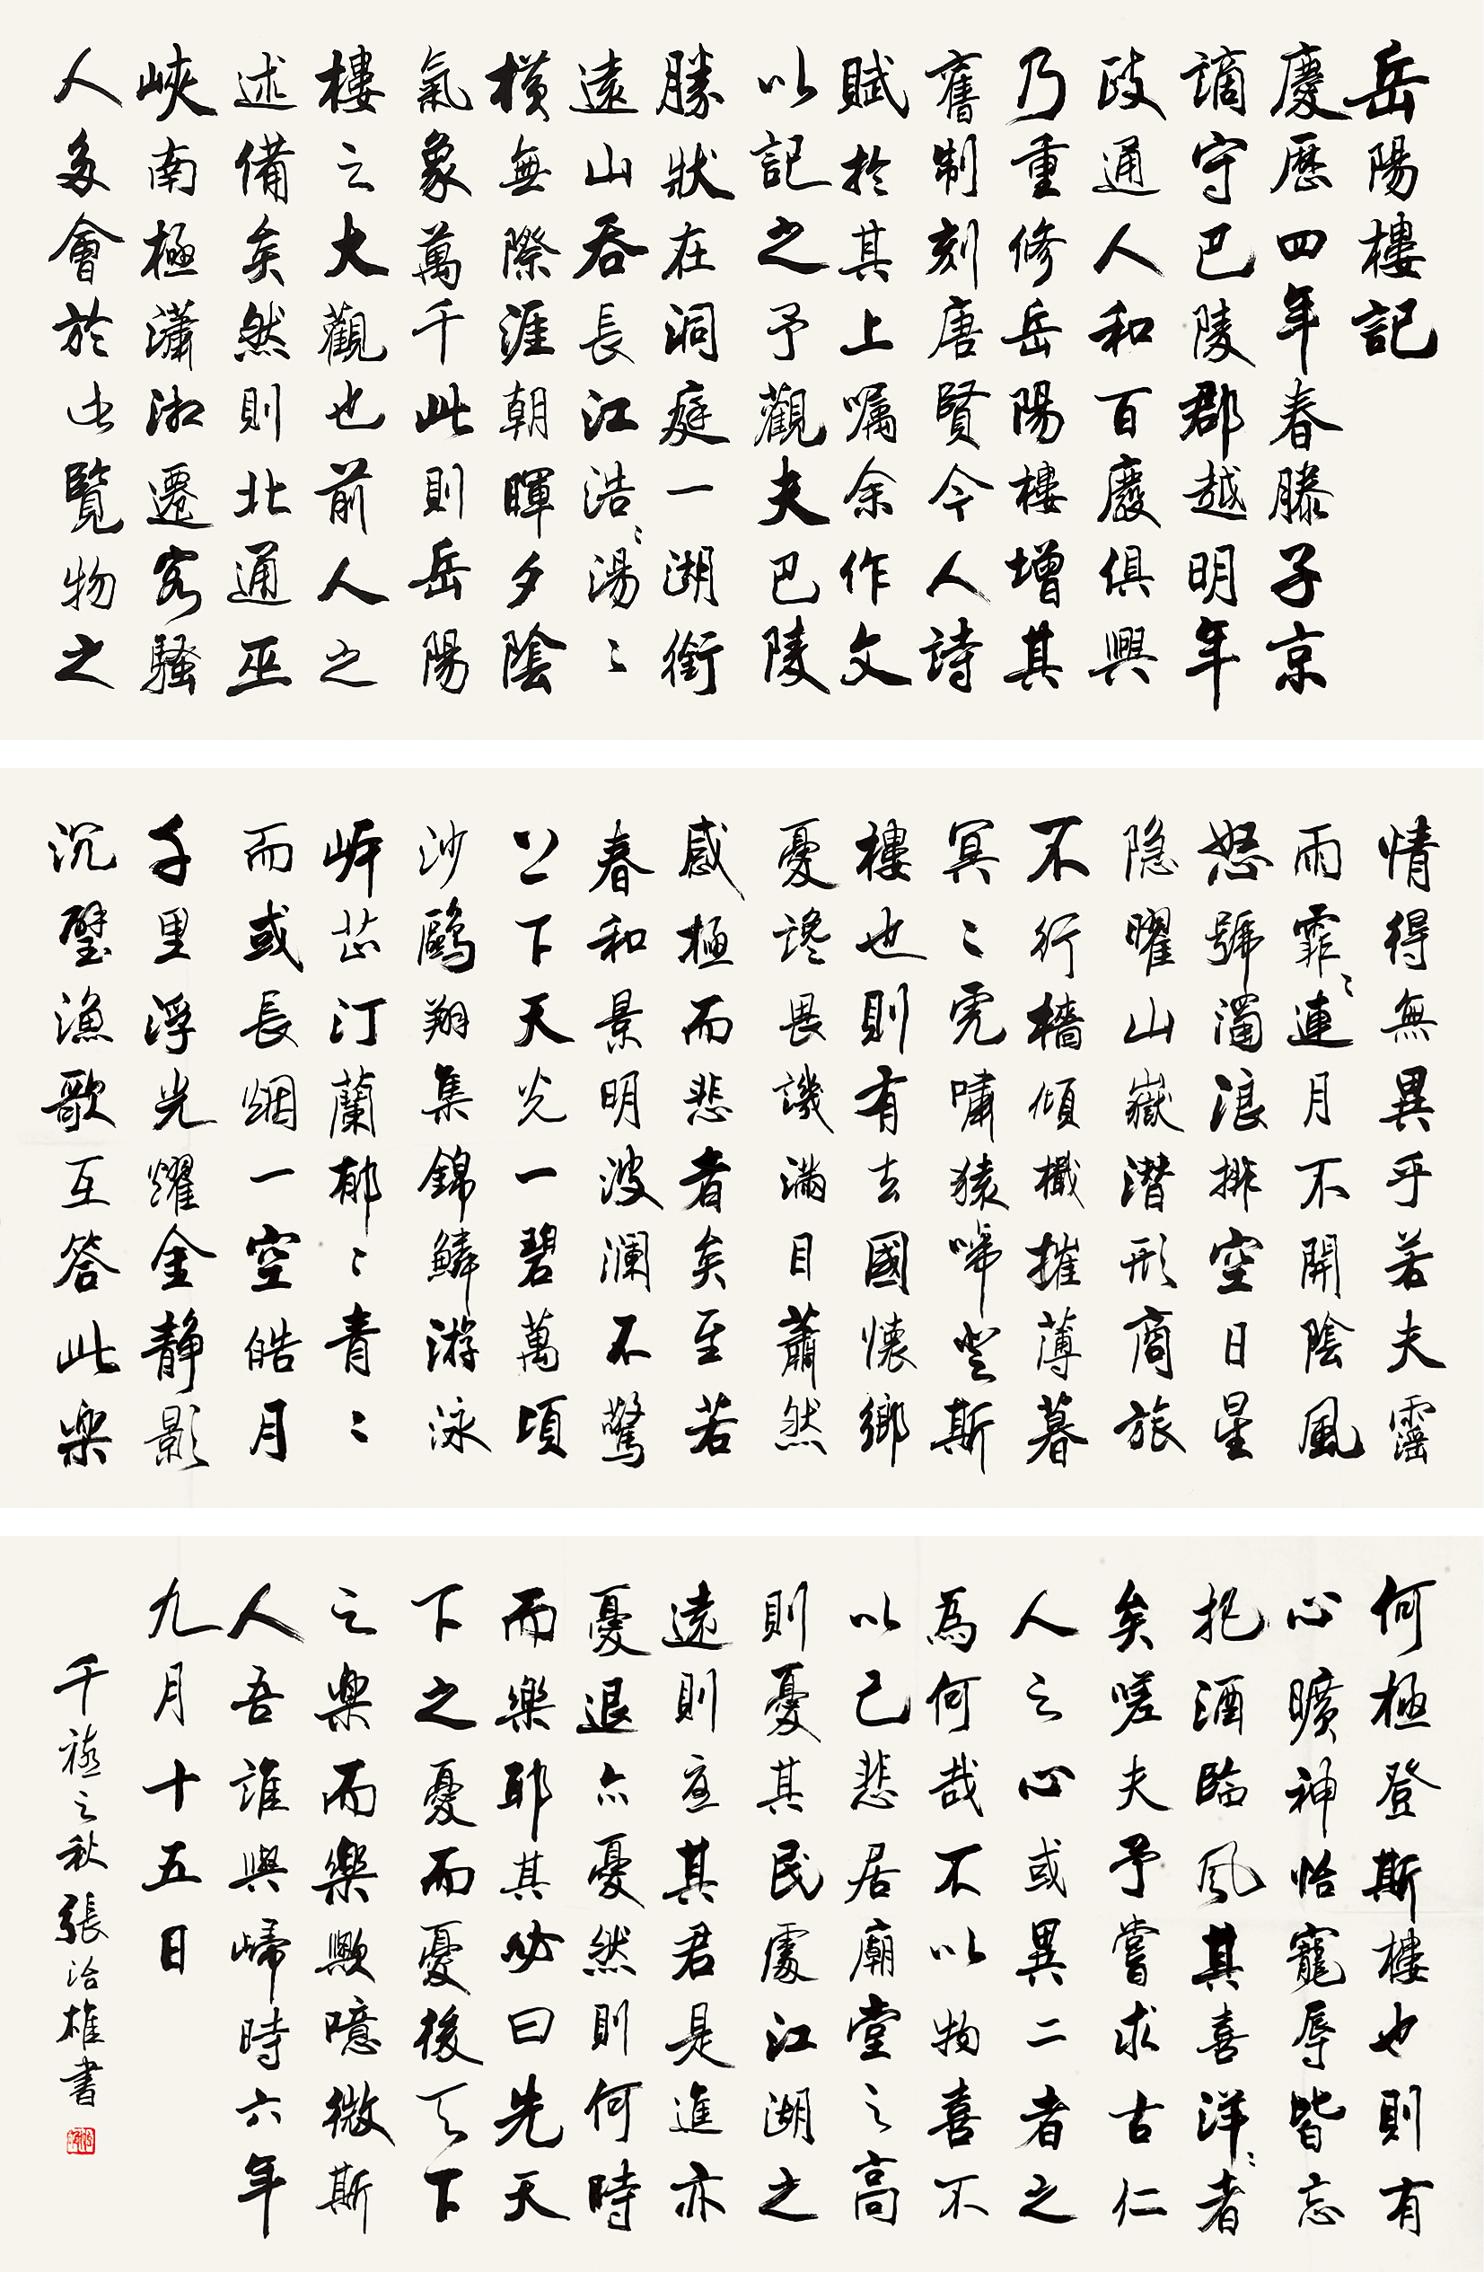 岳陽樓記
慶歷四年春滕子京
謫守巴陵郡越明年
政通人和百廢俱興
乃重修岳陽樓增其
舊制刻唐賢今人詩
賦於其上囑余作文
以記之予觀夫巴陵
勝狀在洞庭一湖銜
遠山吞長江浩〻湯〻
橫無際涯朝暉夕陰
氣象萬千此則岳陽
樓之大觀也前人之
述備矣然則北通巫
峽南極瀟湘遷客騷
人多會於此覽物之
情得無異乎若夫霪
雨霏〻連月不開陰風
怒號濁浪排空日星
隐曜山嶽潛形商旅
不行檣傾檝摧薄暮
冥〻虎嘯猿啼登斯
樓也則有去國懷鄉
憂讒畏譏滿目蕭然
感極而悲者矣至若
春和景明波瀾不驚
上下天光一碧萬頃
沙鷗翔集錦鱗游泳
岸芷汀蘭郁〻青〻
而或長烟一空皓月
千里浮光耀金靜影
沉璧漁歌互答此樂
何極登斯樓也則有
心曠神怡寵辱皆忘
把酒臨風其喜洋〻者
矣嗟夫予嘗求古仁
人之心或異二者之
為何哉不以物喜不
以己悲居廟堂之高
則憂其民處江湖之
遠則憂其君是進亦
憂退亦憂然則何時
而樂耶其必曰先天
下之憂而憂後天下
之樂而樂歟噫微斯
人吾誰與歸時六年
九月十五日
千禧之秋張雄書